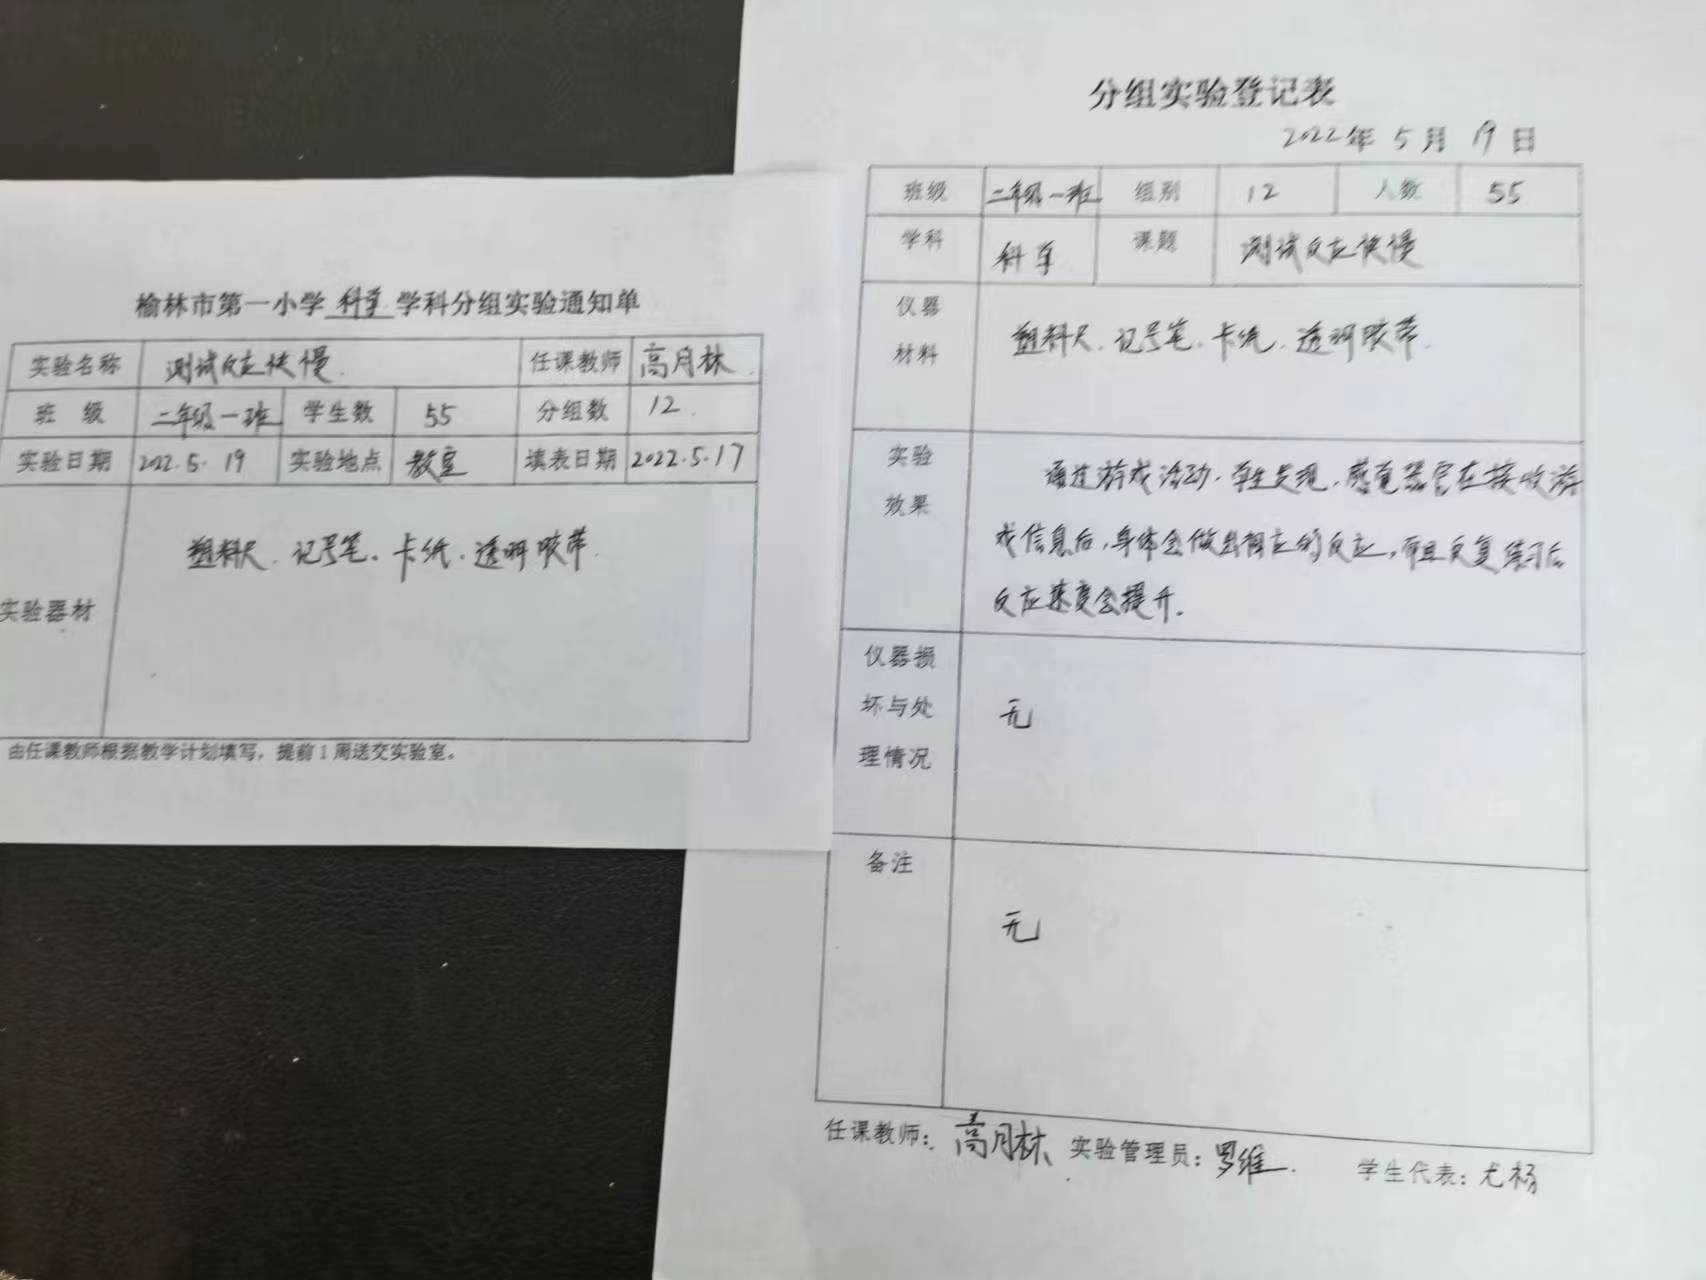 榆林市第一小学 科学 学科分组实验通知单
实验名称 测试反应快慢. 任课教师 高月林.
班 级 二年级一班 学生数 55 分组数 12.
实验日期 2022.5.19 实验地点 教室 填表日期 2022.5.17
塑料尺、记号笔、卡纸、透明胶带.
实验器材
由任课教师根据教学计划填写，提前1周送交实验室。
分组实验登记表
2022年 5 月 19 日
班级 二年级一班 组别 12 人数 55
学科 科学 课题 测试反应快慢
仪器
材料
塑料尺、记号笔、卡纸、透明胶带.
实验
效果
通过游戏活动,学生发现,感觉器官在接收游
戏信息后,身体会做出相应的反应,而且反复练习后
反应速度会提升.
仪器损
坏与处
理情况
无
备注
无
任课教师: 高月林 实验管理员: 罗维. 学生代表: 尤杨